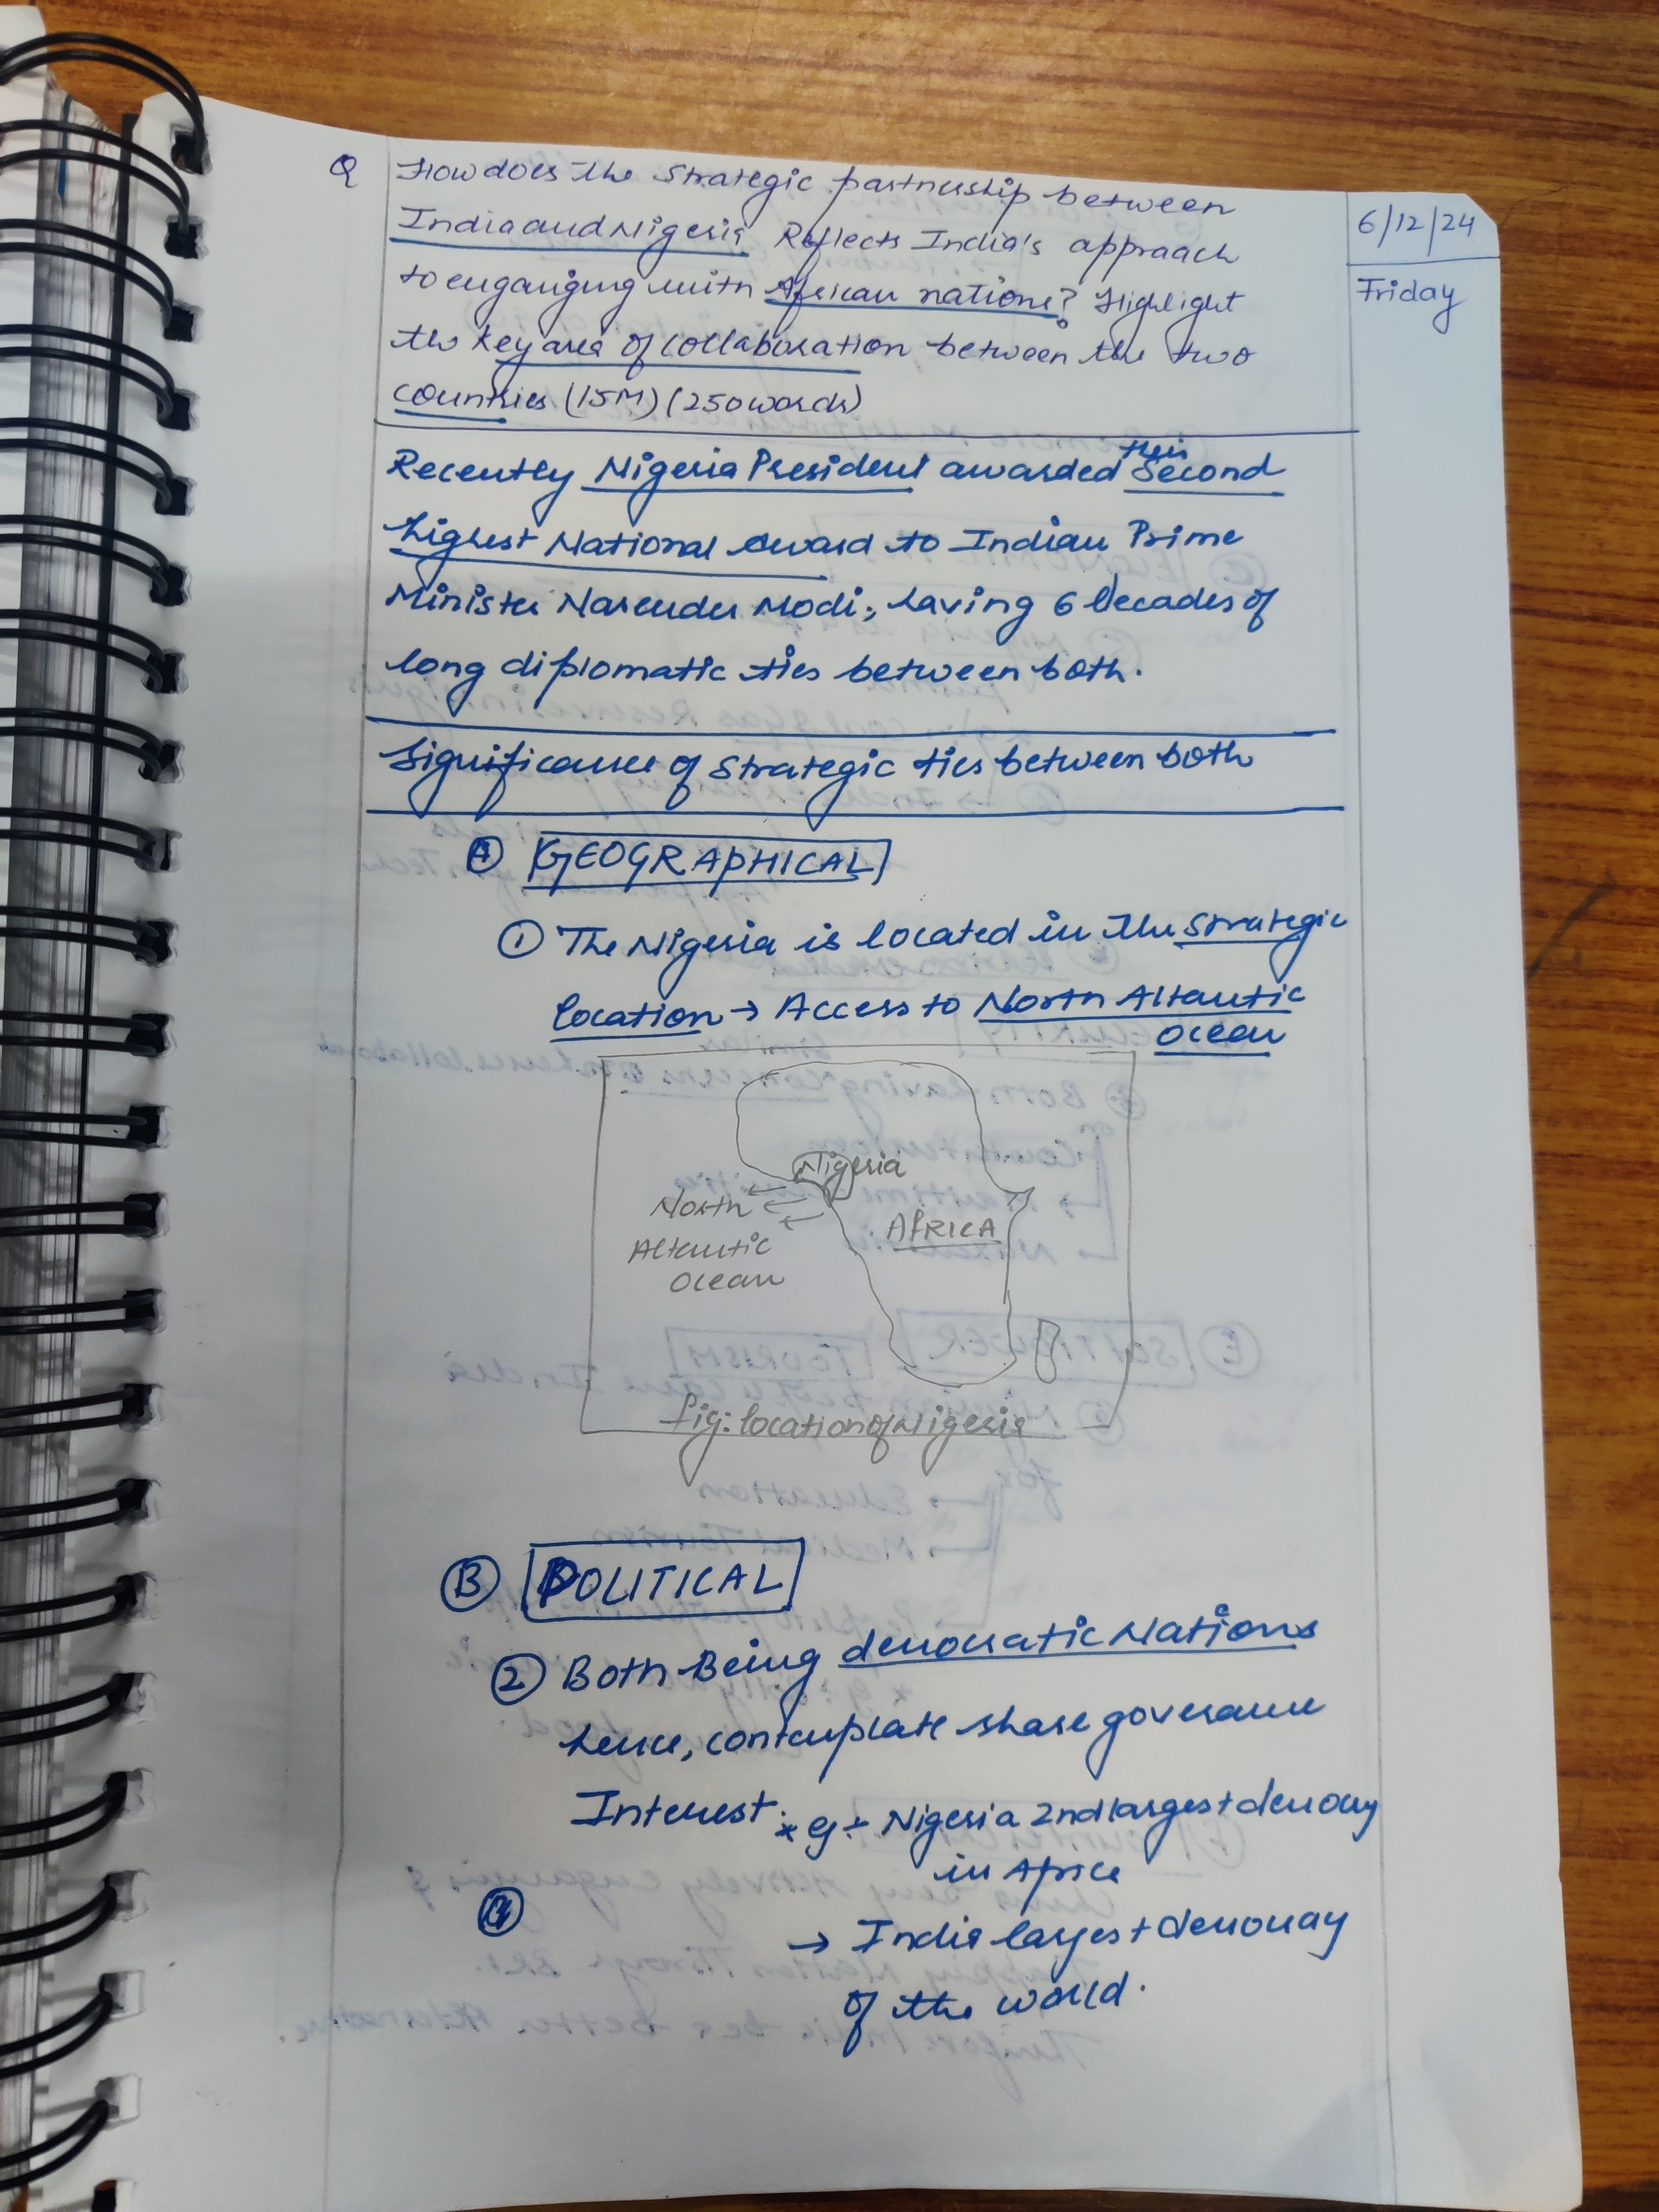 Q How does the Strategic partnership between
6/12/24
India and Nigeria Reflects India's appraach
Friday
to enganging with African nations? Highlight
the key area of collaboration between the two
countries (15M) (250 words)
Recently Nigeria President awarded their Second
highest National award to Indian Prime
Minister Narender Modi, having 6 Decades of
long diplomatic ties between both.
Significance of Strategic ties between both
A GEOGRAPHICAL
1 The Nigeria is located in the Strategic
location → Access to North Altantic
Ocean
Nigeria
North
Altantic
Ocean
AFRICA
fig: location of Nigeria
B POLITICAL
2 Both Being democratic Nations
hence, contemplate share governance
Interest * eg:- Nigeria 2nd largest democracy
in Africa
→ India largest democracy
of the world.